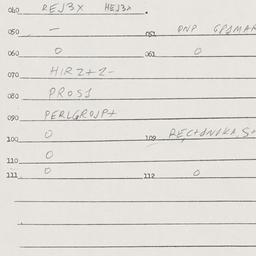 040 REJ3X HEJ3X .
050 — 051 DNP GP1MAR
060 0 061 0
070 HIRZ+Z-
080 PROS1
090 PERLGROJP+
100 0 109
110 0
111 0 112 0